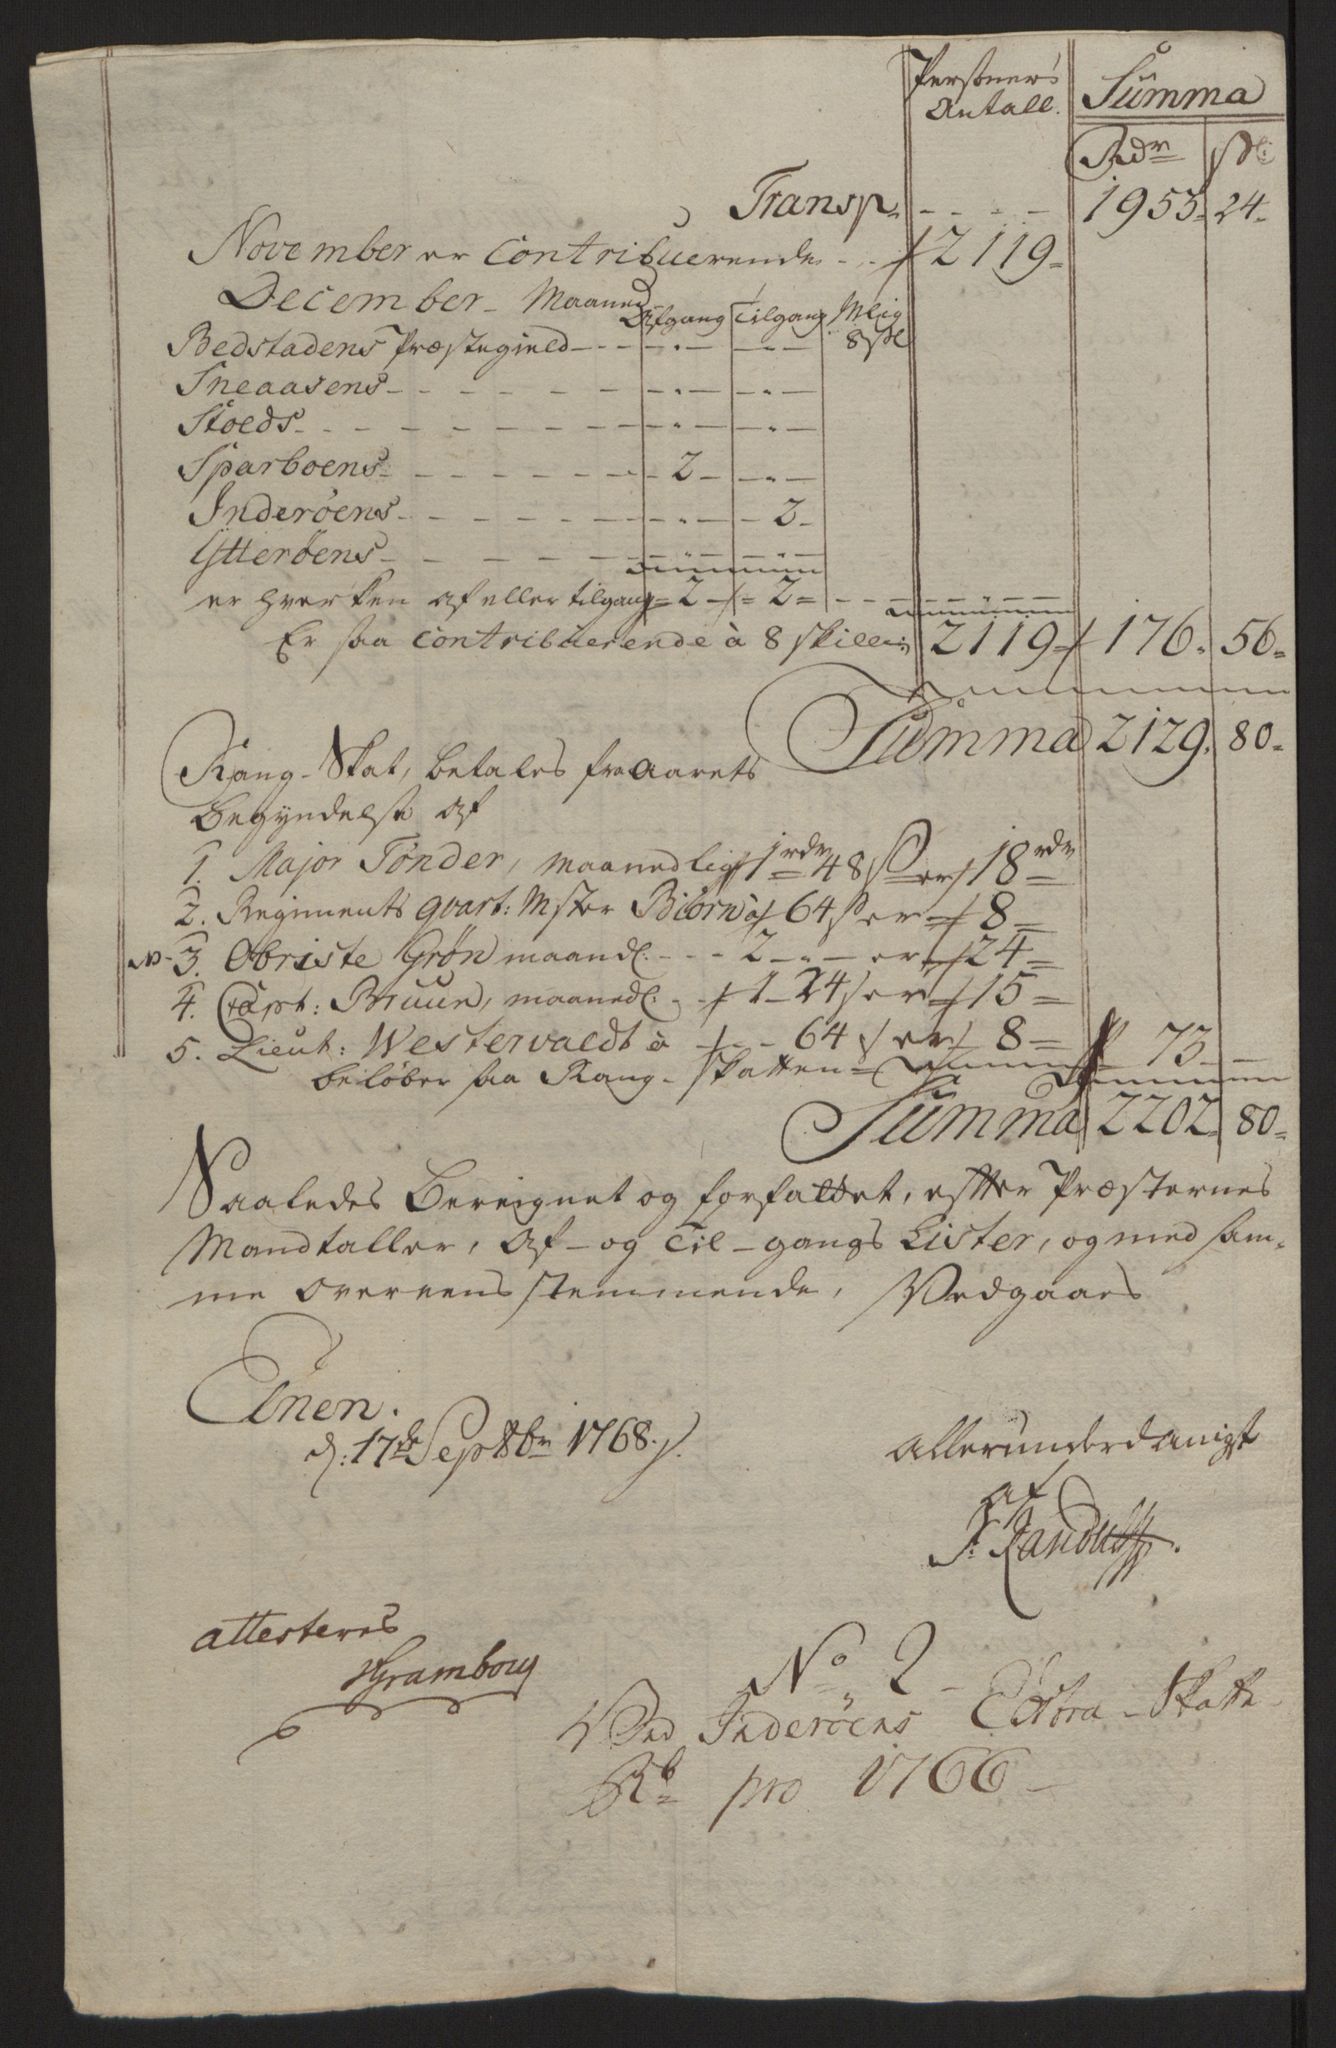 Persohners Antall. Summa
Rdr ſkl:
Transp. - - - - 1953. 24.
November er Contribuerende - - 2119.
December Maaned Afgang Tilgang Mlig
Bedstadens Præstegield - - - 8 skl
Sneaasens - - - - - -
Stoeds - - - - - -
Sparboens - - - - - 2 -
Inderöens - - - - - 2 -
Ytteröens - - - - -
er hverken af eller tilgang = 2 = 2 =
Er saa Contribuerende à 8 skilling 2119 176. 56.
Summa 2129. 80.
Rang-Skat, betales fra Aarets
Begyndelse af
1. Major Tönder, maanedlig 1 rdr 48 s er 18 rdr
2. Regiments Qvart: Mster Biörn à 64 s er 8
3. Obriste Grön maandl. - - 2 - - er 24
4. Capt: Bruun, maanedl. - 1 - 24 s er 15
5. Lieut: Westervaldt à - - 64 s er 8
beløber saa Rang-Skatten 73 -
Summa 2202. 80.
Saaledes Bereignet og forfattet, efter Præsternes
Mandtaller, Af- og Til-gangs Lister, og med sam-
me overeensstemmende, Vedgaaes
Elnen.
d: 17de Septbr 1768.
Allerunderdanigst
af
attesteres
No 2
Ved Inderöens Extra-Skatte
Rb pro 1766